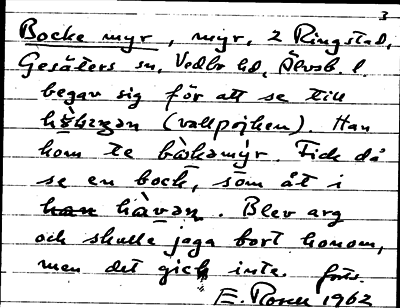 3
Bocke myr, myr, 2 Ringstad,
Gesäters sn, Vedbo hd, Älvsb. l.
begav sig för att se till
(vallpojken). Han
kom te båkamýr. Fick då
se en bock, som åt i
hàvən. Blev arg
och skulle jaga bort honom,
men det gick inte. forts.
E. 1962